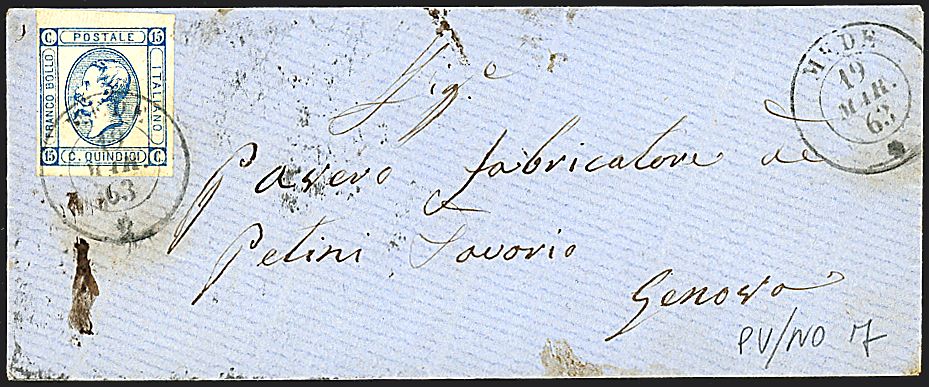 C. POSTALE 15
FRANCO BOLLO
ITALIANO
15 C. QUINDICI C.
MAR.
63
MEDE
19
MAR.
63
Sig.e
Pavero fabricatore de
Petini Savorio
Genova
PV/NO 7